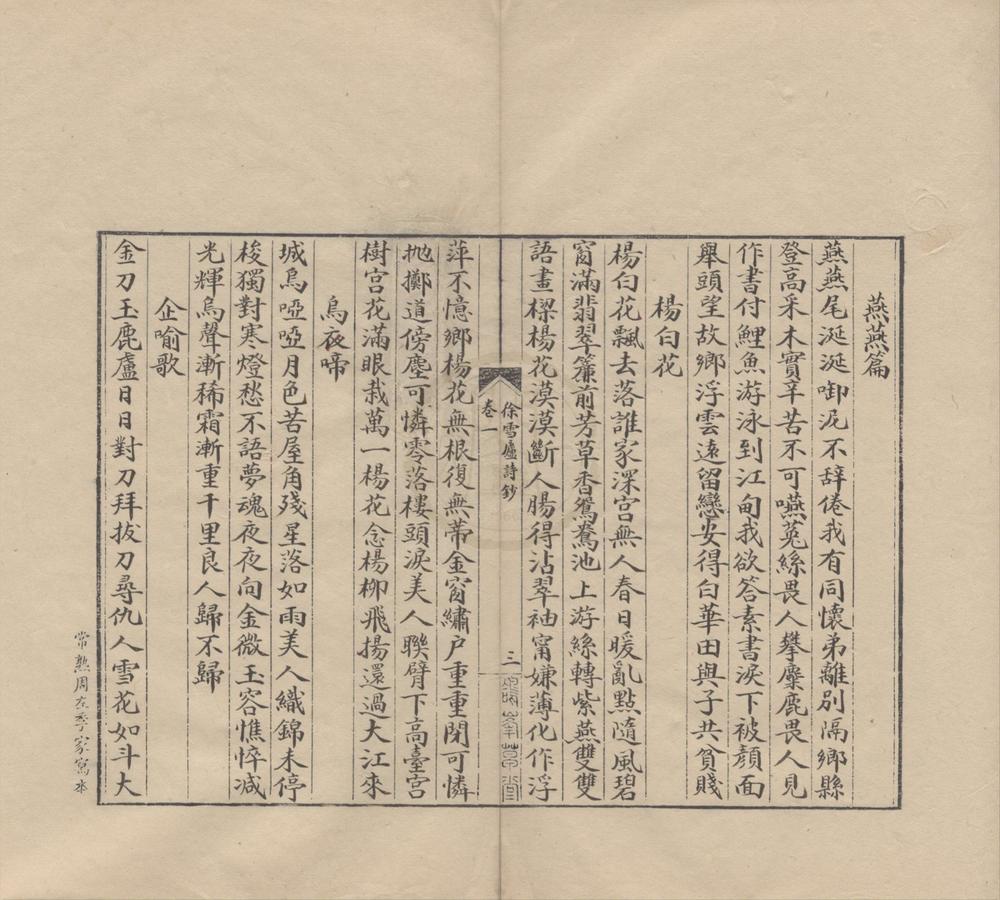 燕燕篇
燕燕尾涎涎啣泥不辞倦我有同懷弟離別隔鄉縣
登高采木實辛苦不可嚥菟絲畏人攀麋鹿畏人見
作書付鯉魚游泳到江甸我欲答素書淚下被顏面
舉頭望故鄉浮雲遠留戀安得白華田與子共貧賤
楊白花
楊白花飄去落誰家深宮無人春日暖亂點隨風碧
窗滿翡翠簾前芳草香鴛鴦池上游絲轉紫燕雙雙
語畫樑楊花漠漠斷人腸得沾翠袖甯嫌薄化作浮
徐雪廬詩鈔
卷一
三
萍不憶鄉楊花無根復無蒂金窗繡户重重閉可憐
抛擲道傍塵可憐零落樓頭淚美人聯臂下高臺宮
樹宮花滿眼栽萬一楊花念楊柳飛揚還過大江來
烏夜啼
城烏啞啞月色苦屋角殘星落如雨美人織錦未停
梭獨對寒燈愁不語夢魂夜夜向金微玉容憔悴減
光輝烏聲漸稀霜漸重千里良人歸不歸
企喻歌
金刀玉鹿盧日日對刀拜拔刀尋仇人雪花如斗大
常熟周左季家寫本